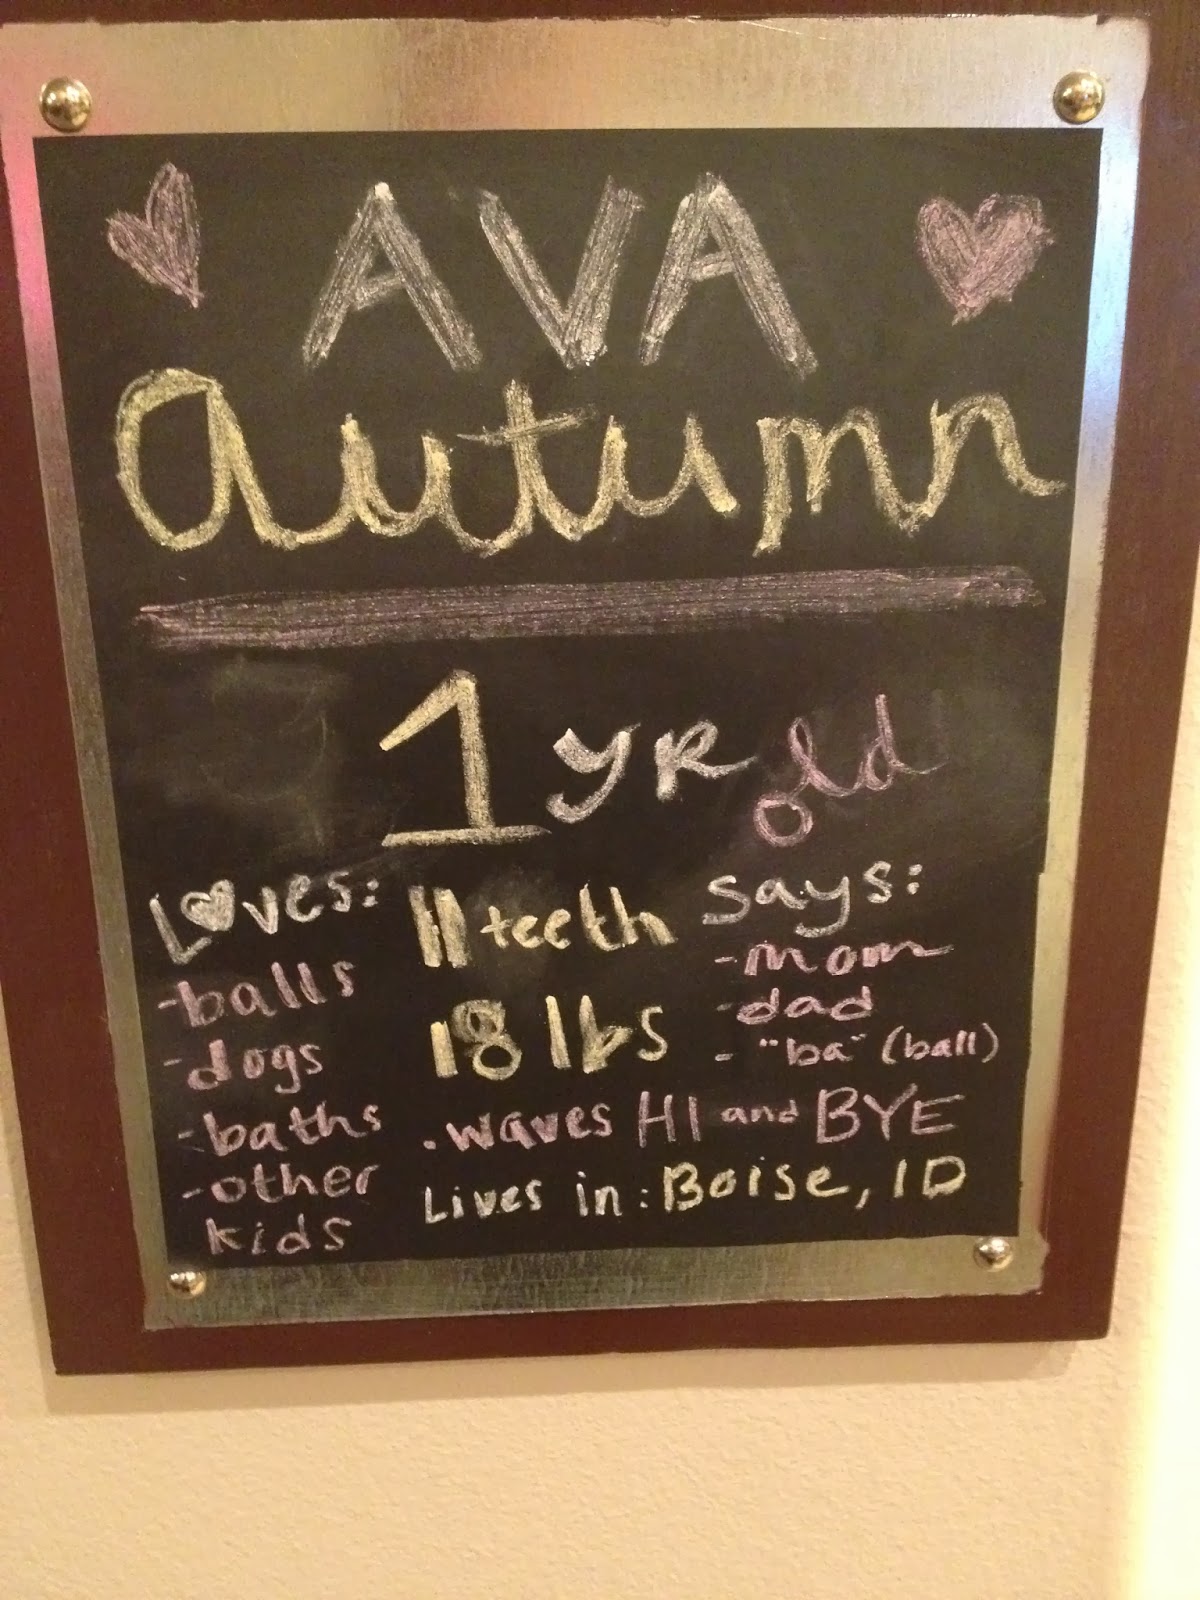 AVA
Autumn
1 YR old
Loves:
-balls
-dogs
-baths
-other
kids
11 teeth
18 lbs
says:
-mom
-dad
- "ba" (ball)
. waves HI and BYE
Lives in: Boise, ID